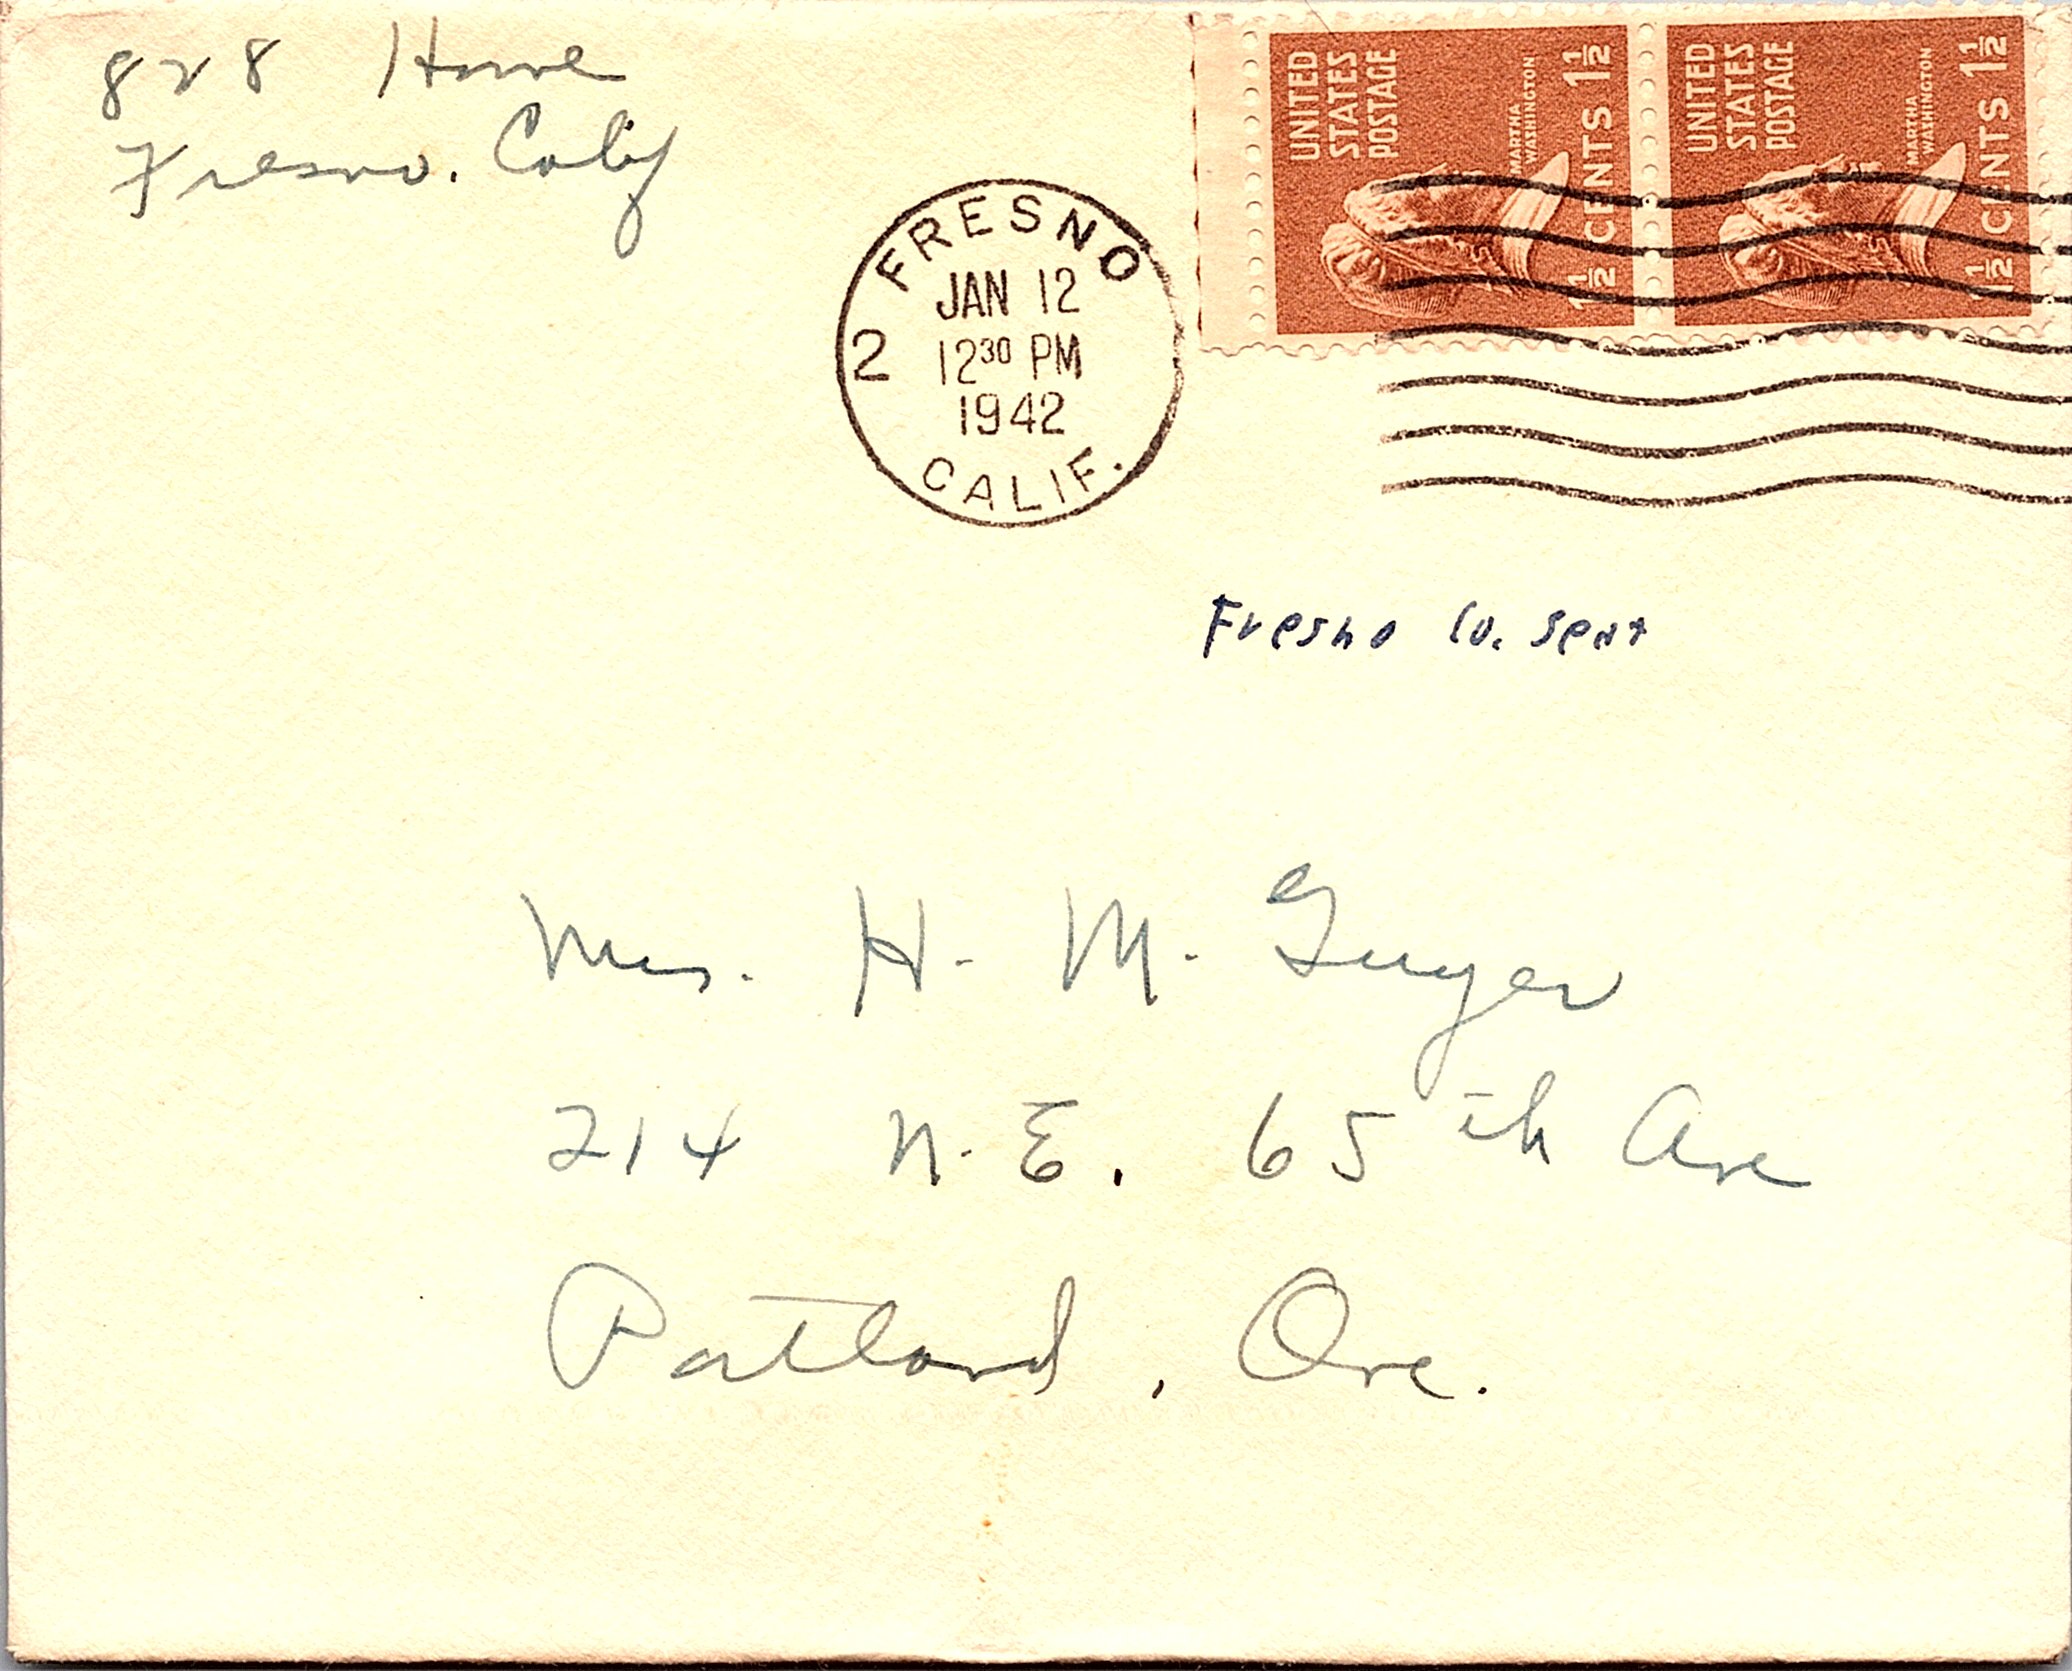 828 Home
Fresno. Calif
FRESNO
JAN 12
2 12 30 PM
1942
CALIF.
UNITED
STATES
POSTAGE
MARTHA
WASHINGTON
1 1/2 CENTS 1 1/2
UNITED
STATES
POSTAGE
MARTHA
WASHINGTON
1 1/2 CENTS 1 1/2
Fresno Co. sent
Mrs. H. M. Guyer
214 N.E. 65th Ave
Portland, Ore.